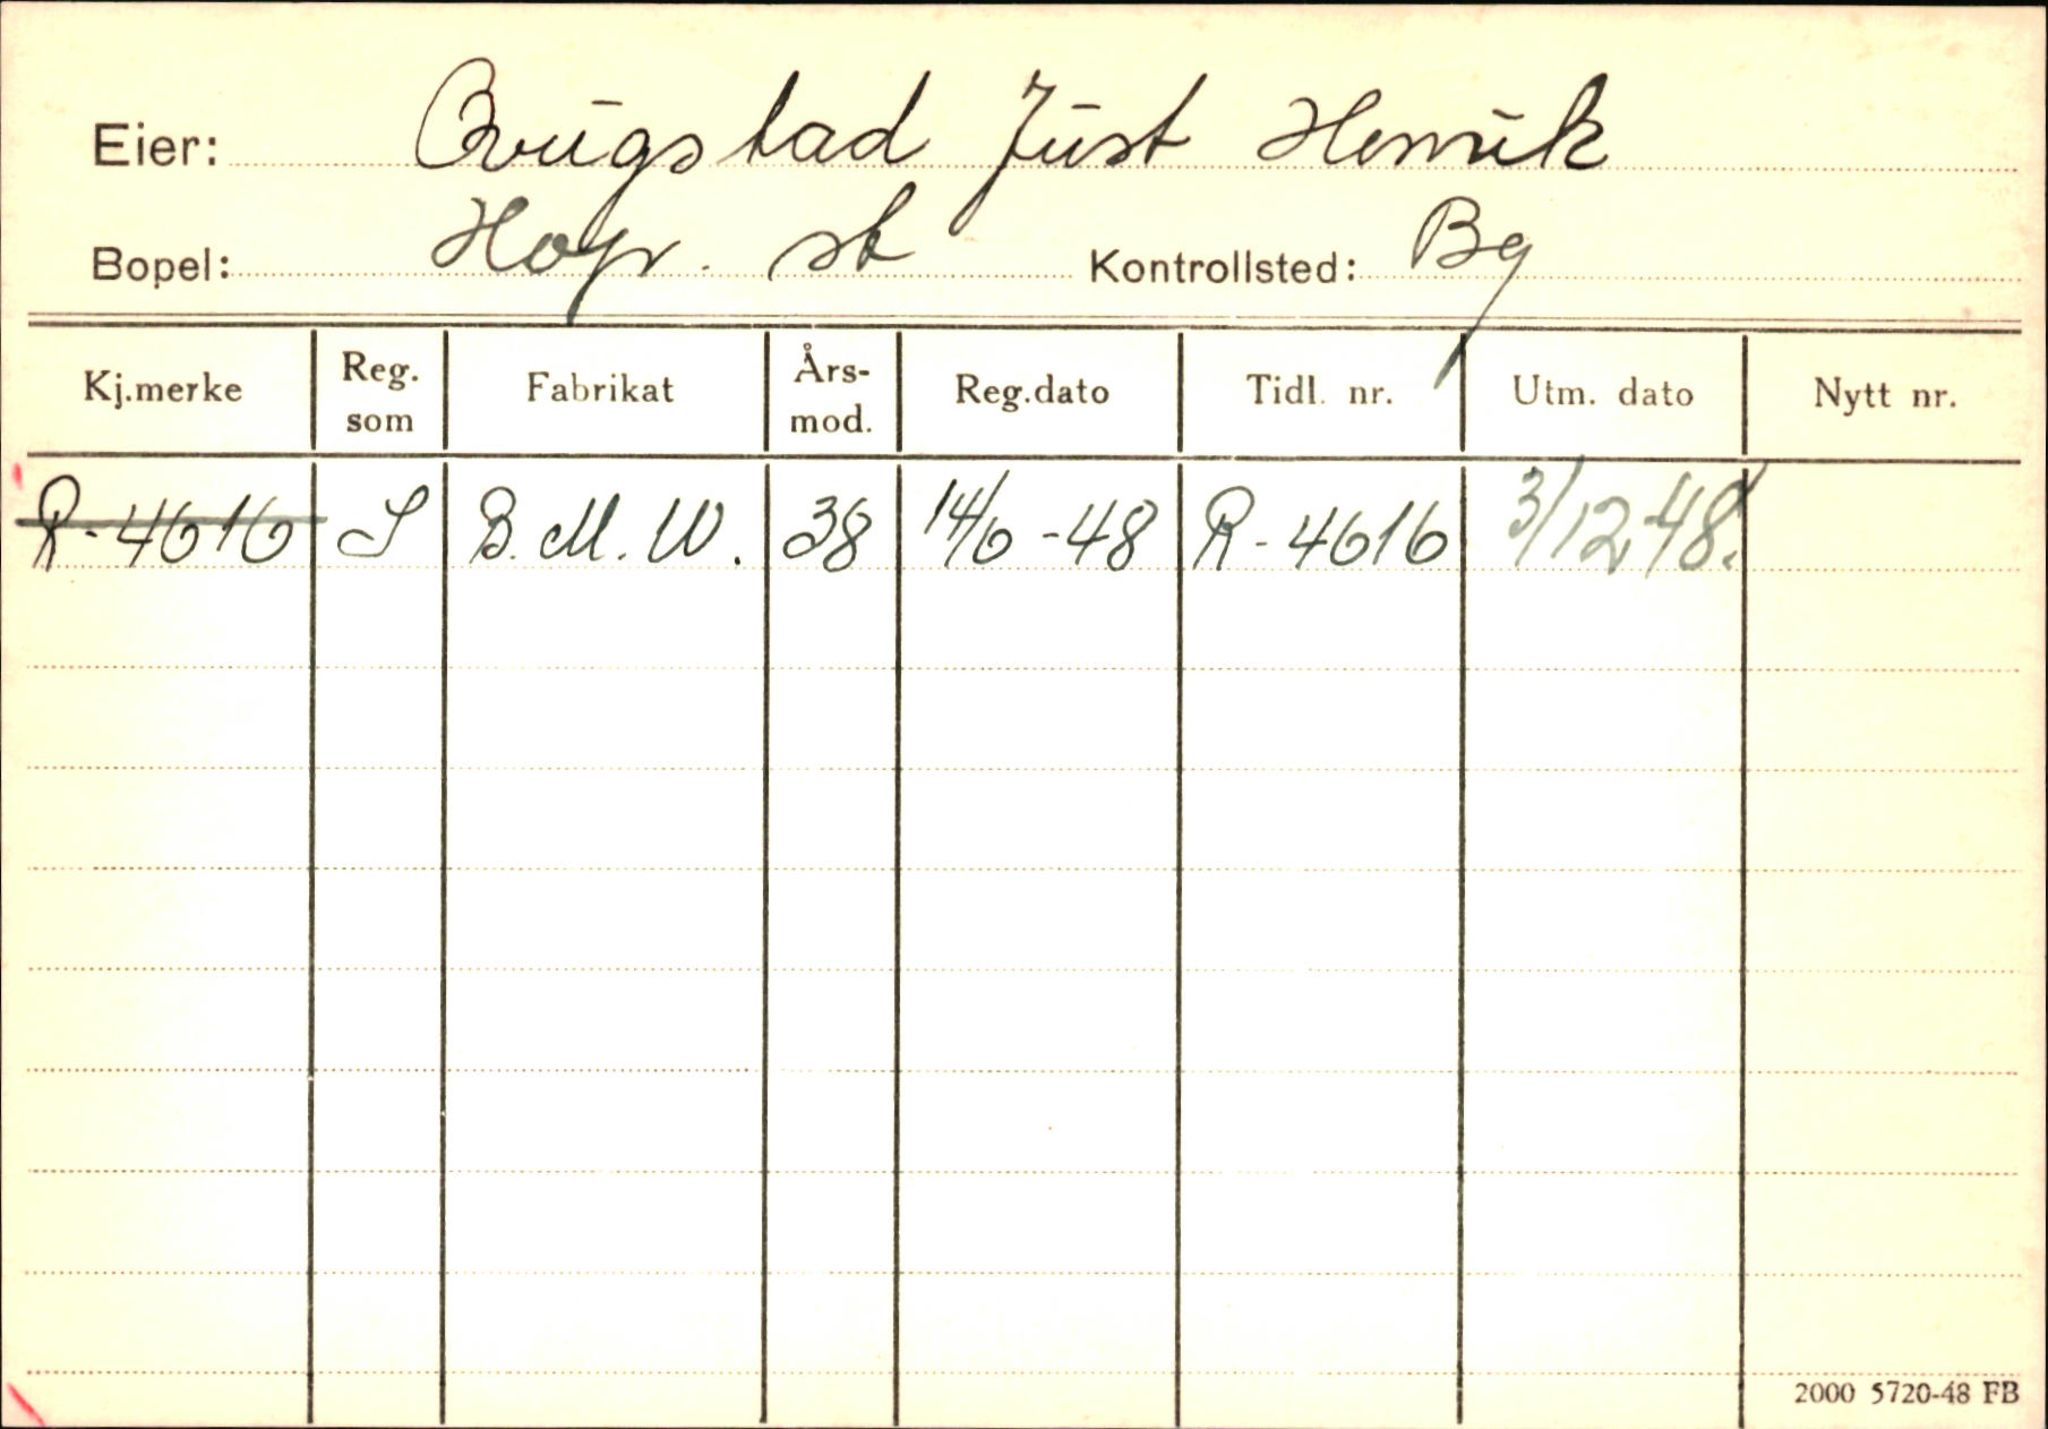 Eier: Brugstad Just Henrik
Bopel: Hop st Kontrollsted: Bg
Kj.merke Reg. som Fabrikat Års- mod. Reg.dato Tidl. nr. Utm. dato Nytt nr.
R-4616 S B.M.W. 38 14/6-48 R-4616 3/12-48.
2000 5720-48 FB